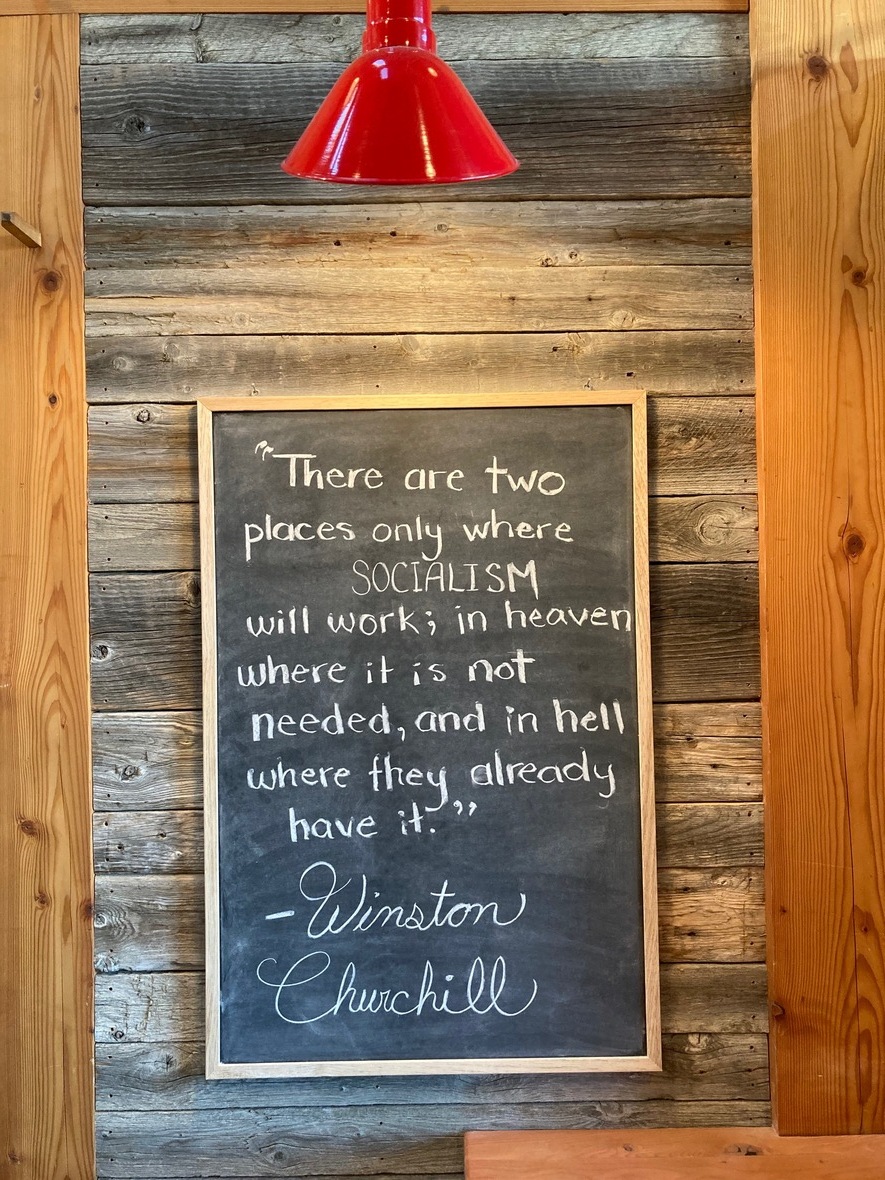 "There are two
places only where
SOCIALISM
will work; in heaven
where it is not
needed, and in hell
where they already
have it."
- Winston
Churchill